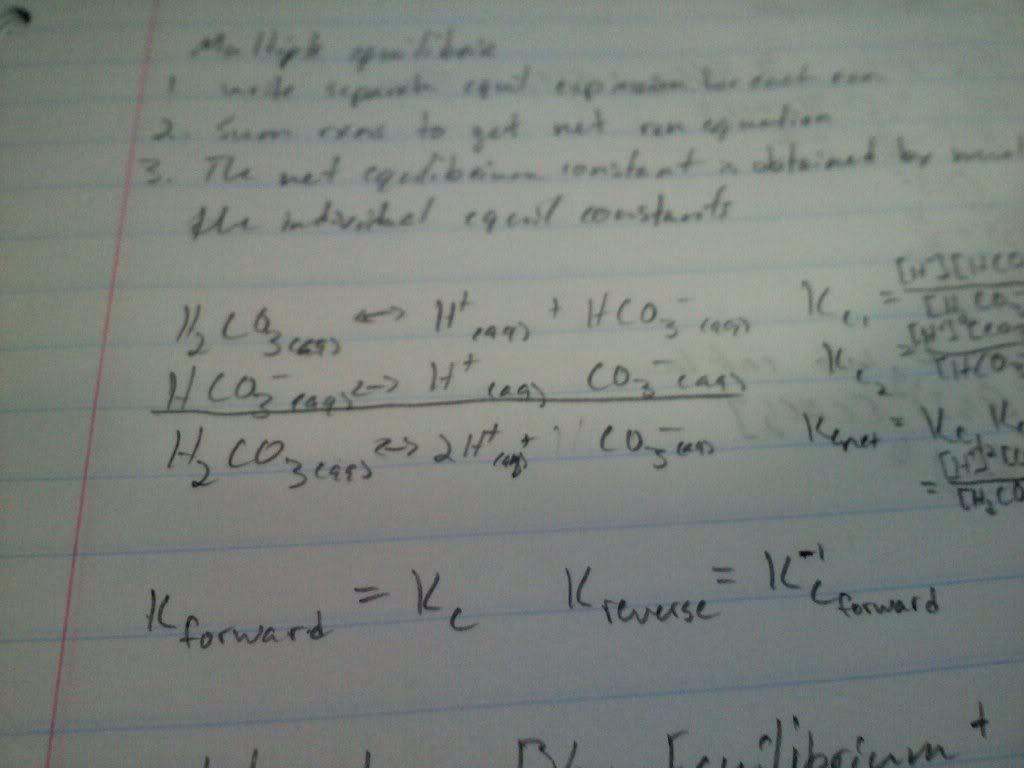 Multiple equilibria
1 write separate equil expression for each rxn
2. Sum rxns to get net rxn equation
3. The net equilibrium constant is obtained by
the individual equil constants
H₂CO₃(aq) ↔ H⁺(aq) + HCO₃⁻(aq) Kc₁ = [H][HCO
HCO₃⁻(aq) ↔ H⁺(aq) CO₃⁻(aq) Kc₂ =
H₂CO₃(aq) ↔ 2H⁺(aq) + CO₃⁻(aq) Kcnet = Kc K
= [H]²[C / [H₂CO
Kforward = Kc Kreverse = Kc⁻¹forward
Equilibrium +